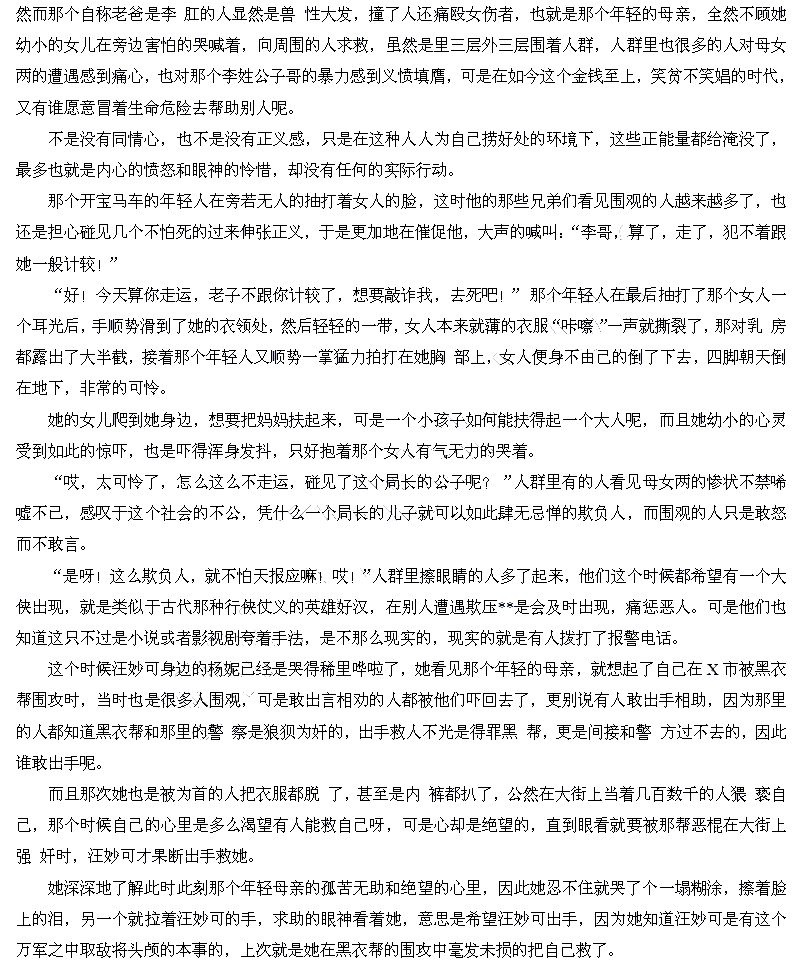 然而那个自称老爸是李 肛的人显然是兽 性大发，撞了人还痛殴女伤者，也就是那个年轻的母亲，全然不顾她
幼小的女儿在旁边害怕的哭喊着，向周围的人求救，虽然是里三层外三层围着人群，人群里也很多的人对母女
两的遭遇感到痛心，也对那个李姓公子哥的暴力感到义愤填膺，可是在如今这个金钱至上，笑贫不笑娼的时代，
又有谁愿意冒着生命危险去帮助别人呢。
不是没有同情心，也不是没有正义感，只是在这种人人为自己捞好处的环境下，这些正能量都给淹没了，
最多也就是内心的愤怒和眼神的怜惜，却没有任何的实际行动。
那个开宝马车的年轻人在旁若无人的抽打着女人的脸，这时他的那些兄弟们看见围观的人越来越多了，也
还是担心碰见几个不怕死的过来伸张正义，于是更加地在催促他，大声的喊叫：“李哥，算了，走了，犯不着跟
她一般计较！”
“好！今天算你走运，老子不跟你计较了，想要敲诈我，去死吧！” 那个年轻人在最后抽打了那个女人一
个耳光后，手顺势滑到了她的衣领处，然后轻轻的一带，女人本来就薄的衣服“咔嚓”一声就撕裂了，那对乳 房
都露出了大半截，接着那个年轻人又顺势一掌猛力拍打在她胸 部上，女人便身不由己的倒了下去，四脚朝天倒
在地下，非常的可怜。
她的女儿爬到她身边，想要把妈妈扶起来，可是一个小孩子如何能扶得起一个大人呢，而且她幼小的心灵
受到如此的惊吓，也是吓得浑身发抖，只好抱着那个女人有气无力的哭着。
“哎，太可怜了，怎么这么不走运，碰见了这个局长的公子呢？ ”人群里有的人看见母女两的惨状不禁唏
嘘不已，感叹于这个社会的不公，凭什么一个局长的儿子就可以如此肆无忌惮的欺负人，而围观的人只是敢怒
而不敢言。
“是呀！这么欺负人，就不怕天报应嘛！哎！”人群里擦眼睛的人多了起来，他们这个时候都希望有一个大
侠出现，就是类似于古代那种行侠仗义的英雄好汉，在别人遭遇欺压**是会及时出现，痛惩恶人。可是他们也
知道这只不过是小说或者影视剧夸着手法，是不那么现实的，现实的就是有人拨打了报警电话。
这个时候汪妙可身边的杨妮已经是哭得稀里哗啦了，她看见那个年轻的母亲，就想起了自己在 X 市被黑衣
帮围攻时，当时也是很多人围观，可是敢出言相劝的人都被他们吓回去了，更别说有人敢出手相助，因为那里
的人都知道黑衣帮和那里的警 察是狼狈为奸的，出手救人不光是得罪黑 帮，更是间接和警 方过不去的，因此
谁敢出手呢。
而且那次她也是被为首的人把衣服都脱 了，甚至是内 裤都扒了，公然在大街上当着几百数千的人猥 亵自
己，那个时候自己的心里是多么渴望有人能救自己呀，可是心却是绝望的，直到眼看就要被那帮恶棍在大街上
强 奸时，汪妙可才果断出手救她。
她深深地了解此时此刻那个年轻母亲的孤苦无助和绝望的心里，因此她忍不住就哭了个一塌糊涂，擦着脸
上的泪，另一个就拉着汪妙可的手，求助的眼神看着她，意思是希望汪妙可出手，因为她知道汪妙可是有这个
万军之中取敌将头颅的本事的，上次就是她在黑衣帮的围攻中毫发未损的把自己救了。